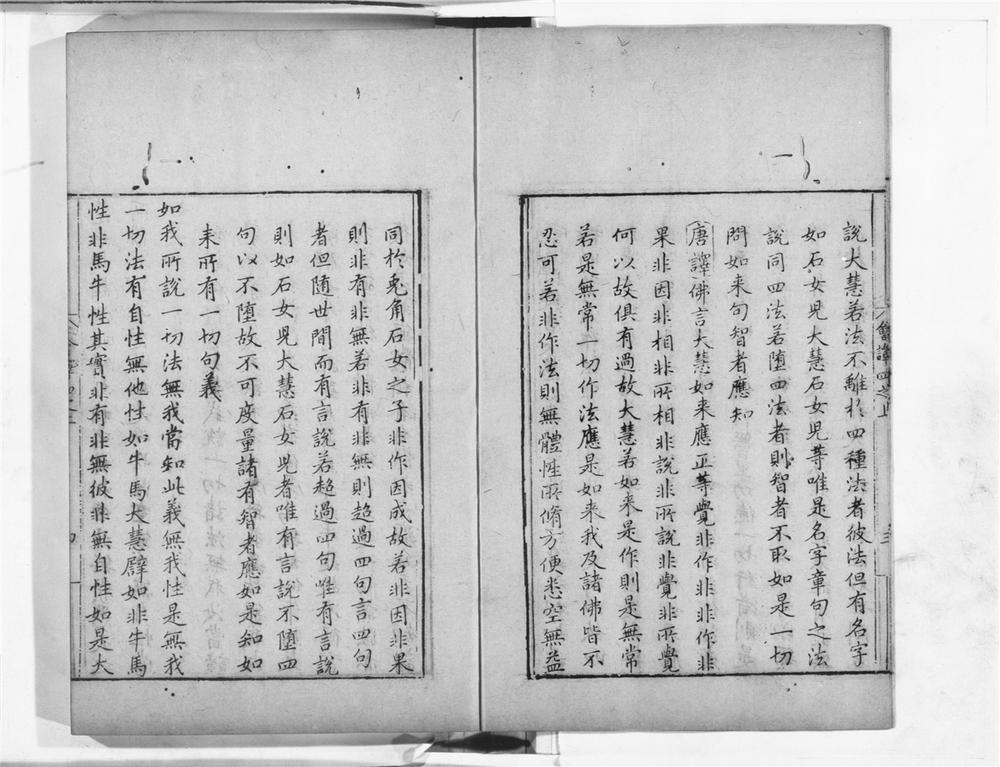 說大慧若法不離於四種法者彼法但有名字
如石女兒大慧石女兒等唯是名字章句之法
說同四法若墮四法者則智者不取如是一切
問如来句智者應知
唐譯佛言大慧如来應正等覺非作非非作非
果非因非相非所相非說非所說非覺非所覺
何以故俱有過故大慧若如来是作則是無常
若是無常一切作法應是如来我及諸佛皆不
忍可若非作法則無體性所脩方便悉空無益
同於兎角石女之子非作因成故若非因非果
則非有非無若非有非無則超過四句言四句
者但随世間而有言說若超過四句唯有言說
則如石女兒大慧石女兒者唯有言說不墮四
句以不墮故不可度量諸有智者應如是知如
来所有一切句義
如我所說一切法無我當知此義無我性是無我
一切法有自性無他性如牛馬大慧譬如非牛馬
性非馬牛性其實非有非無彼非無自性如是大